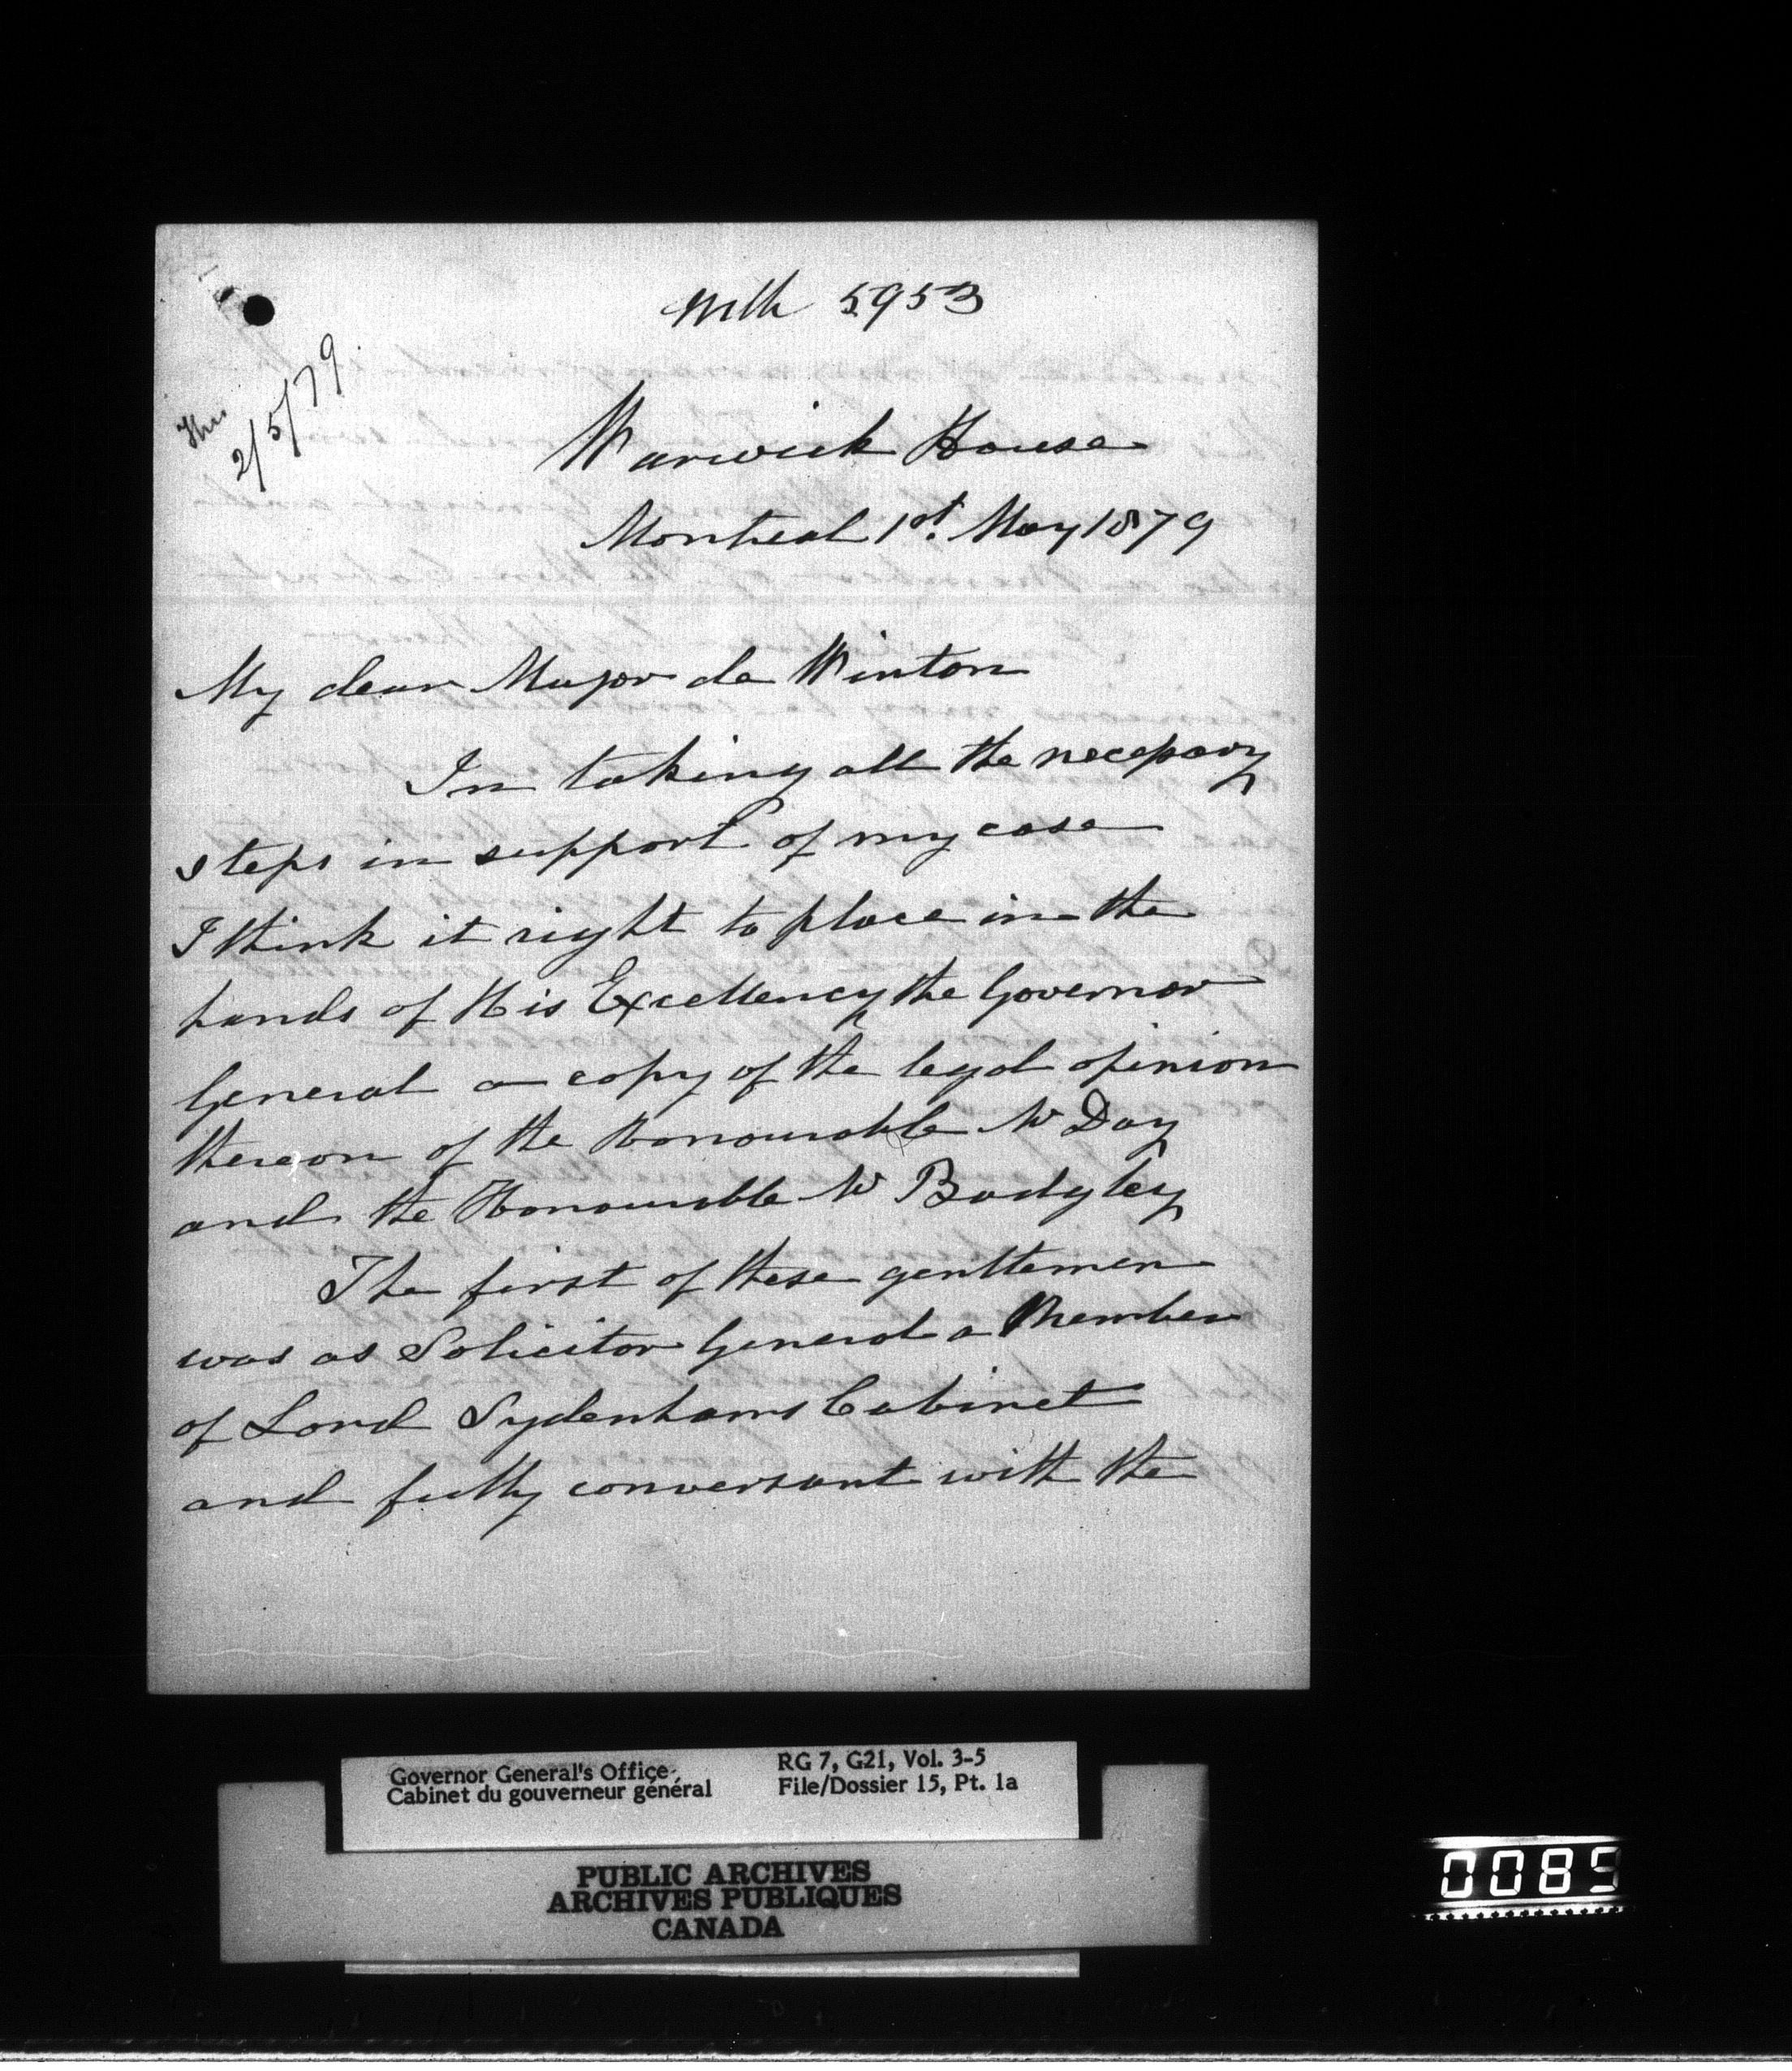 5953
2/5/79
Warwick House
Montreal 1st. May 1879
My dear Major de Winton
In taking all the necessary
steps in support of my case
I think it right to place in the
hands of His Excellency the Governor
General a copy of the legal opinion
thereon of the Honourable Mr Day
and the Honourable Mr Badgley
The first of these gentlemen
was as Solicitor General a Member
of Lord Sydenhams Cabinet
and fully conversant with the
Governor General's Office
Cabinet du gouverneur général
RG 7, G21, Vol. 3-5
File/Dossier 15, Pt. 1a
PUBLIC ARCHIVES
ARCHIVES PUBLIQUES
CANADA
0085